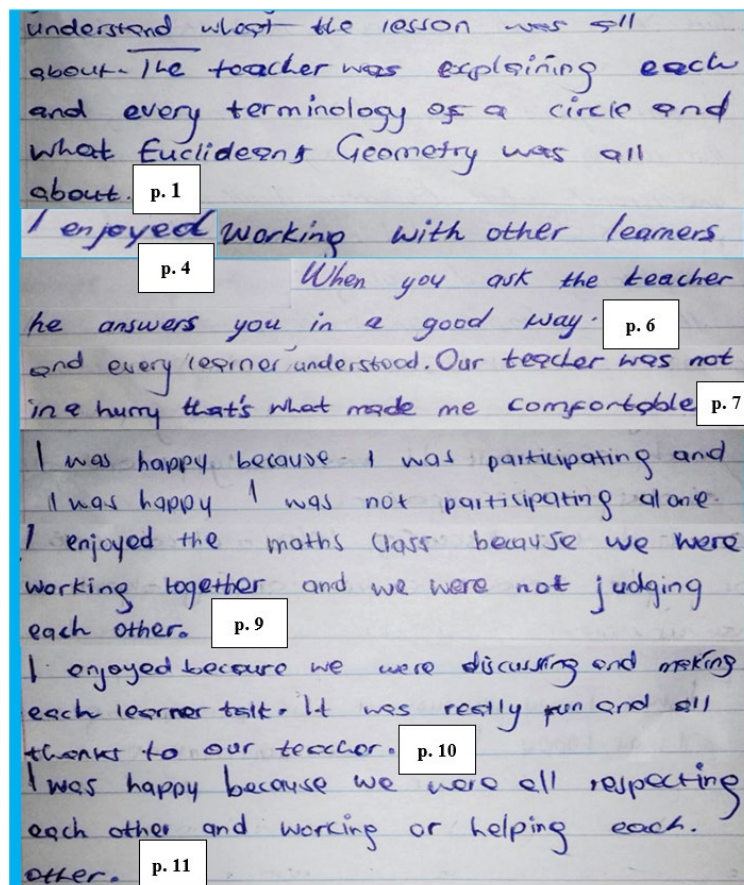 understand what the lesson was all
about. The teacher was explaining each
and every terminology of a circle and
what Euclideans Geometry was all
about. p. 1
I enjoyed working with other learners
p. 4
When you ask the teacher
he answers you in a good way. p. 6
and every learner understood. Our teacher was not
in a hurry that's what made me comfortable p. 7
I was happy because I was participating and
I was happy I was not participating alone.
I enjoyed the maths class because we were
working together and we were not judging
each other. p. 9
I enjoyed because we were discussing and making
each learner talk. It was really fun and all
thanks to our teacher. p. 10
I was happy because we were all respecting
each other and working or helping each.
other. p. 11